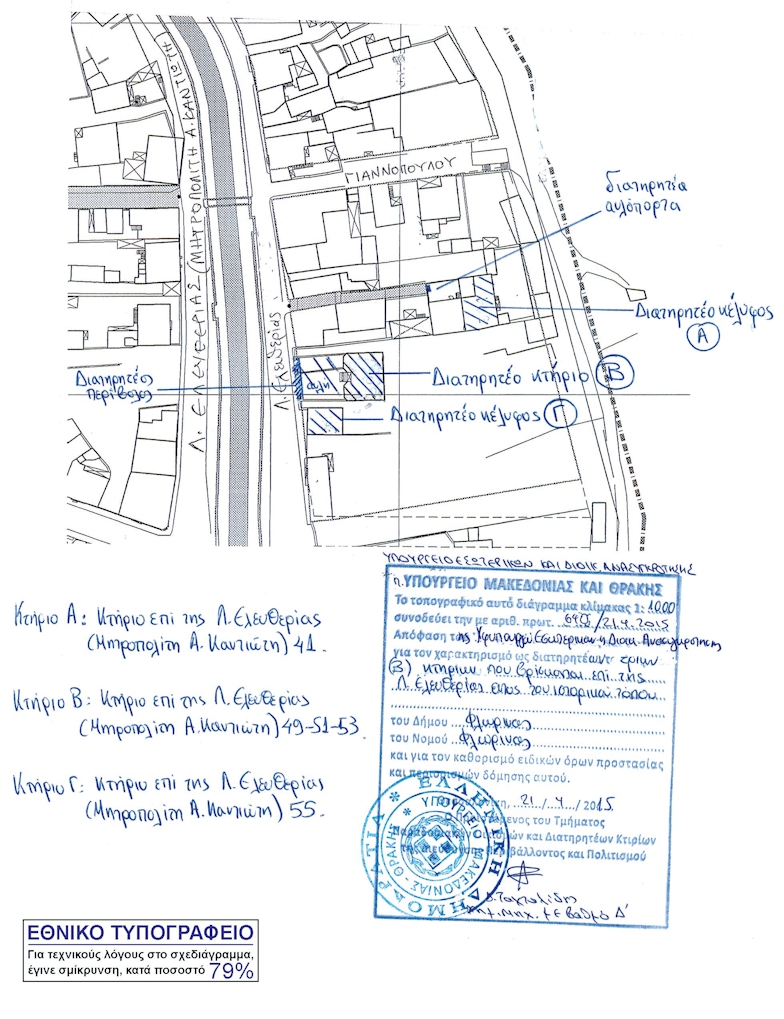 ΓΙΑΝΝΟΠΟΥΛΟΥ
Λ. ΕΛΕΥΘΕΡΙΑΣ (ΜΗΤΡΟΠΟΛΙΤΗ Α. ΚΑΝΤΙΩΤΗ)
Λ. Ελευθερίας
διατηρητέα
αυλόπορτα
Διατηρητέο κέλυφος
Α
Διατηρητέος
περίβολος
Διατηρητέο κτήριο Β
Διατηρητέο κέλυφος Γ
Κτήριο Α: Κτήριο επί της Λ. Ελευθερίας
(Μητροπολίτη Α. Καντιώτη) 41.
Κτήριο Β: Κτήριο επί της Λ. Ελευθερίας
(Μητροπολίτη Α. Καντιώτη) 49-51-53.
Κτήριο Γ: Κτήριο επί της Λ. Ελευθερίας
(Μητροπολίτη Α. Καντιώτη) 55.
ΥΠΟΥΡΓΕΙΟ ΕΣΩΤΕΡΙΚΩΝ ΚΑΙ ΔΙΟΙΚ. ΑΝΑΣΥΓΚΡΟΤΗΣΗΣ
π. ΥΠΟΥΡΓΕΙΟ ΜΑΚΕΔΟΝΙΑΣ ΚΑΙ ΘΡΑΚΗΣ
Το τοπογραφικό αυτό διάγραμμα κλίμακας 1: 1000
συνοδεύει την με αριθ. πρωτ. /21.4.2015
Απόφαση της Εσωτερικών & Διοικ. Ανασυγκρότησης
για τον χαρακτηρισμό ως διατηρητέων τριών
(3) κτηρίων που βρίσκονται επί της
Λ. Ελευθερίας εντός του ιστορικού τόπου
του Δήμου Φλώρινας
του Νομού Φλώρινας
και για τον καθορισμό ειδικών όρων προστασίας
και περιορισμών δόμησης αυτού.
21/4/2015
Ο Προϊστάμενος του Τμήματος
και Διατηρητέων Κτιρίων
της Διεύθυνσης Περιβάλλοντος και Πολιτισμού
ΕΛΛΗΝΙΚΗ ΔΗΜΟΚΡΑΤΙΑ
ΥΠΟΥΡΓΕΙΟ ΜΑΚΕΔΟΝΙΑΣ - ΘΡΑΚΗΣ
με βαθμό Δ΄
ΕΘΝΙΚΟ ΤΥΠΟΓΡΑΦΕΙΟ
Για τεχνικούς λόγους στο σχεδιάγραμμα,
έγινε σμίκρυνση, κατά ποσοστό 79%